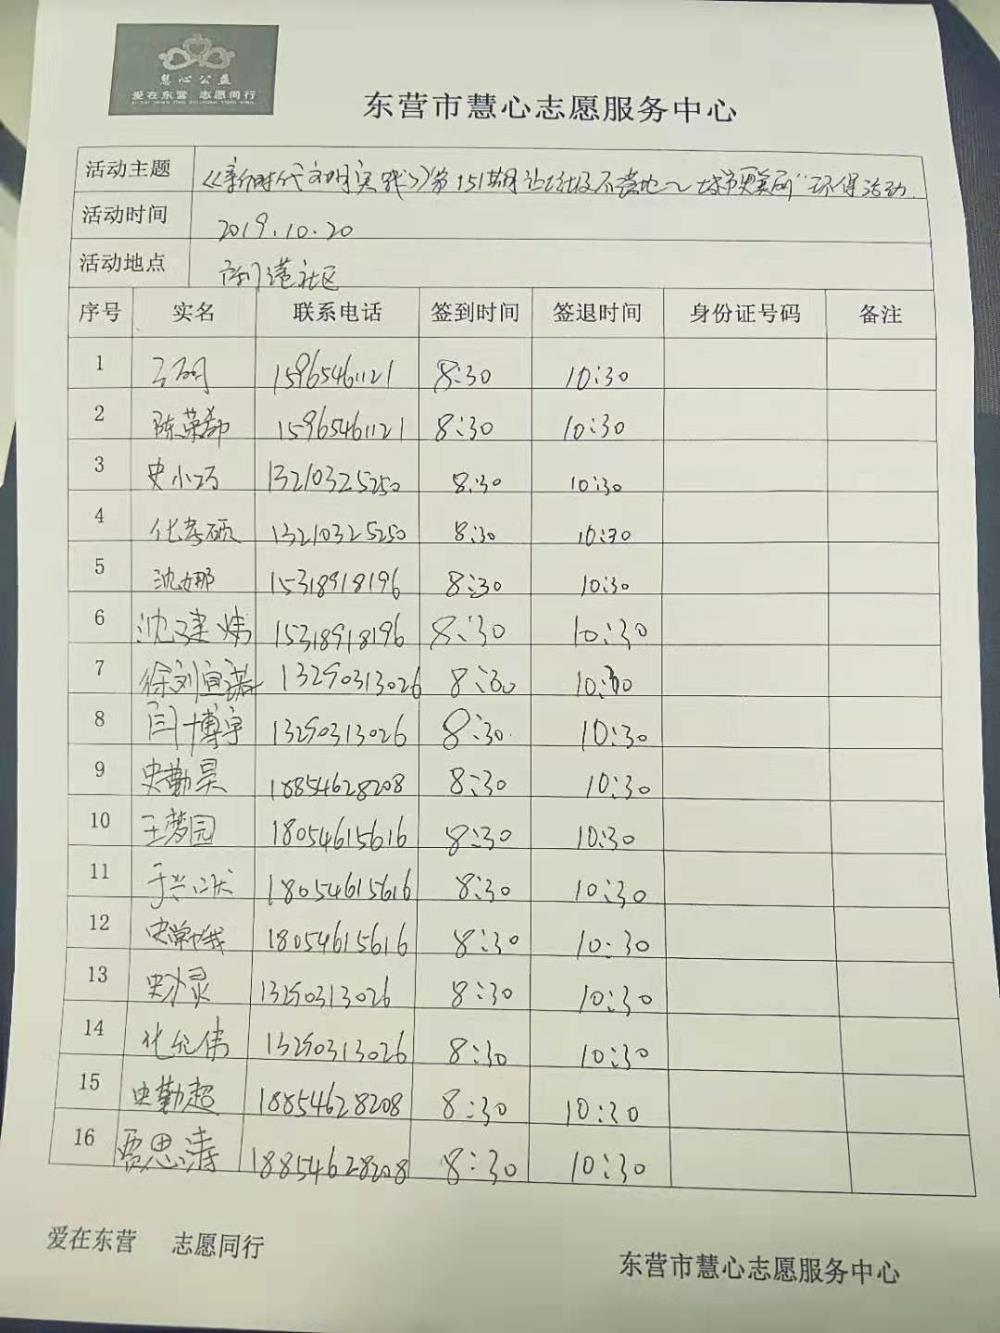 慧心公益
爱在东营 志愿同行
东营市慧心志愿服务中心
活动主题 《新时代文明实践》第151期让垃圾不落地~城市更美丽"环保活动
活动时间 2019.10.20
活动地点 社区
序号 实名 联系电话 签到时间 签退时间 身份证号码 备注
1 15965461121 8:30 10:30
2 陈荣 15965461121 8:30 10:30
3 史小巧 13210325250 8:30 10:30
4 化孝硕 13210325250 8:30 10:30
5 沈娜 15318918196 8:30 10:30
6 沈建炜 15318918196 8:30 10:30
7 徐刘宜诺 13290313026 8:30 10:30
8 闫博宇 13290313026 8:30 10:30
9 史勤昊 18854628208 8:30 10:30
10 王梦园 18054615616 8:30 10:30
11 于兴 18054615616 8:30 10:30
12 史 18054615616 8:30 10:30
13 史 13290313026 8:30 10:30
14 化允伟 13290313026 8:30 10:30
15 史勤超 18854628208 8:30 10:30
16 贾思涛 18854628208 8:30 10:30
爱在东营 志愿同行
东营市慧心志愿服务中心